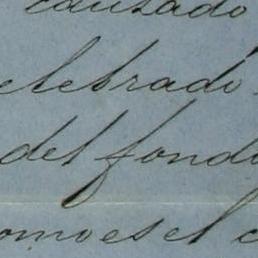 causado
elebrado
del fondo
omo es el c